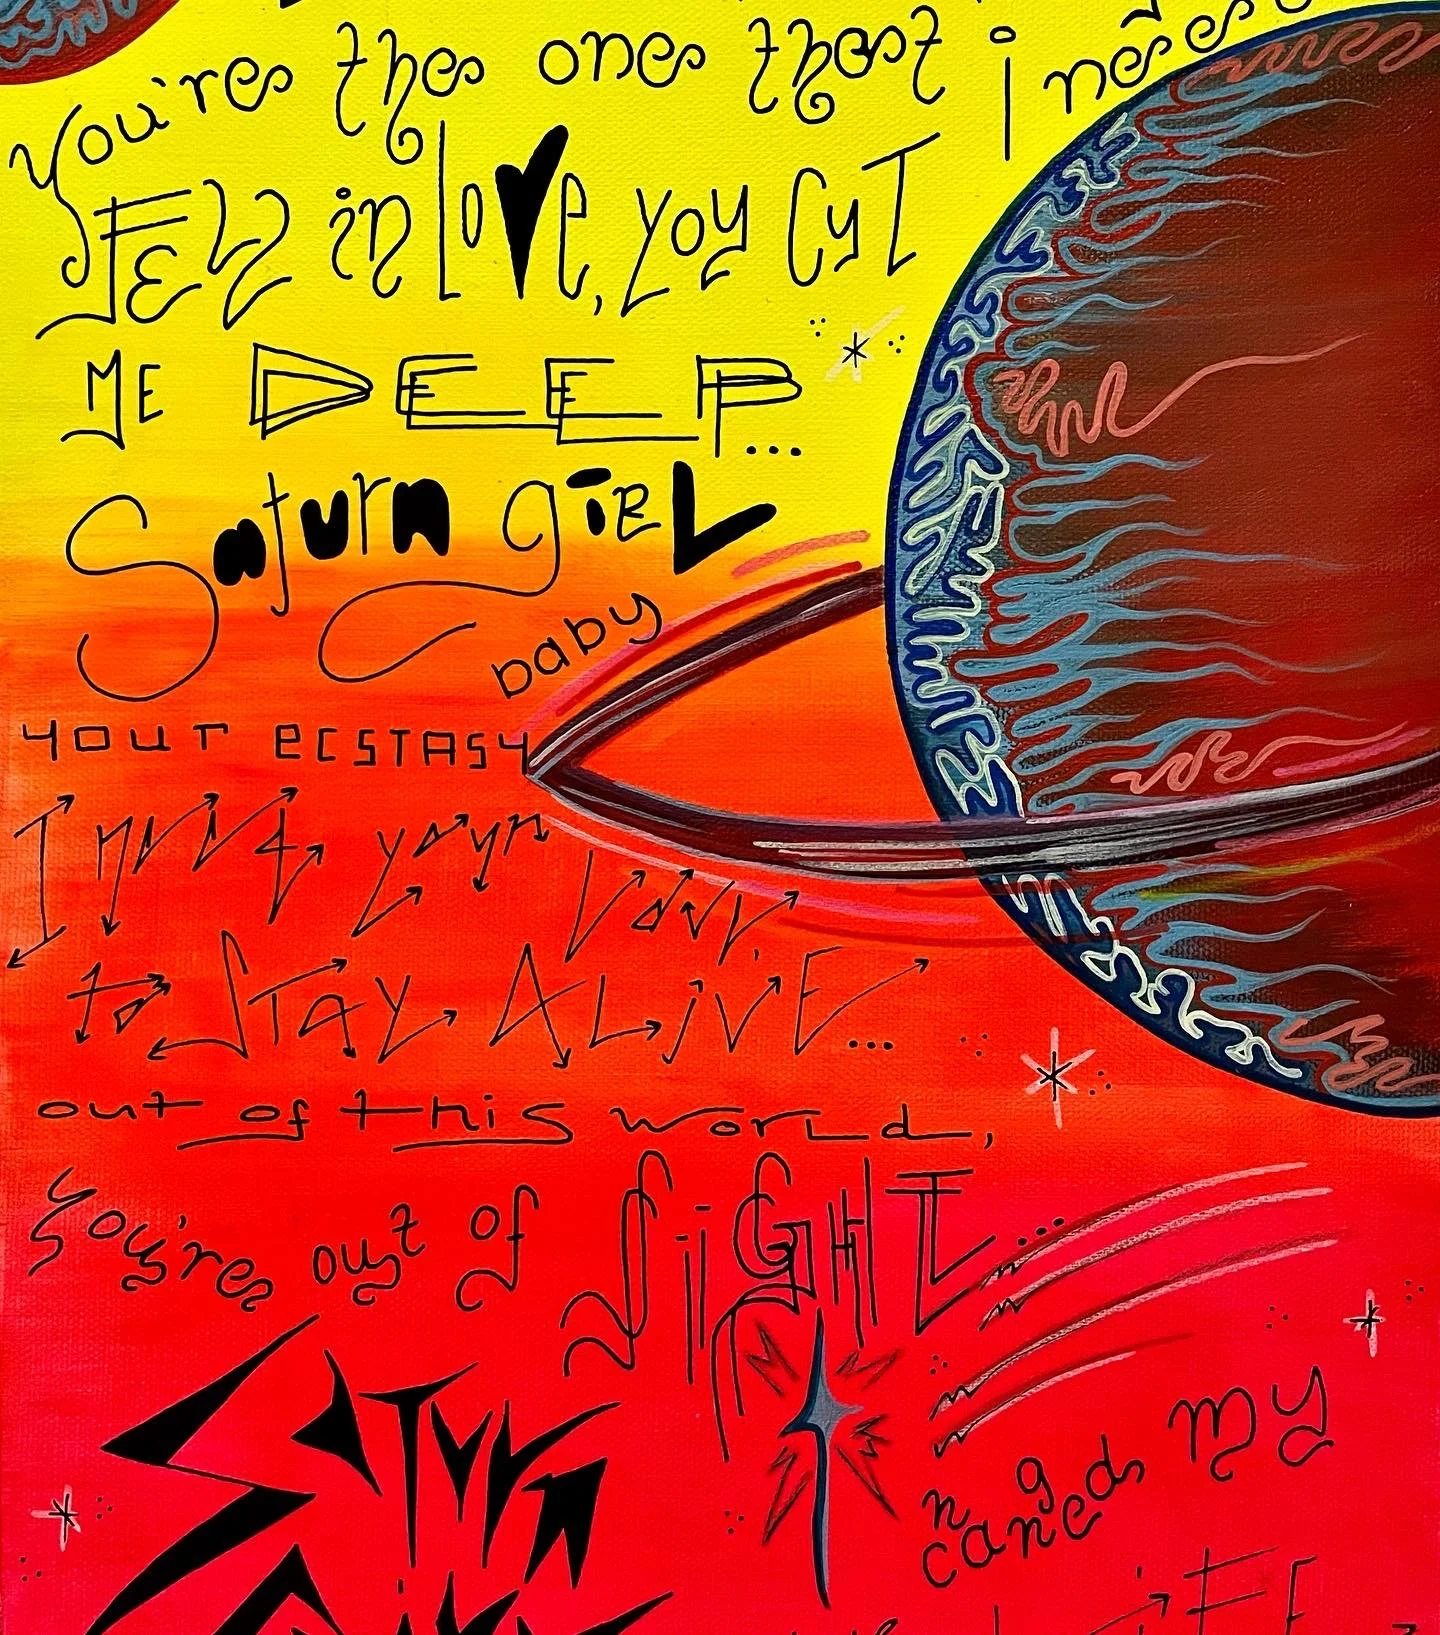 You're the one that i need
FELL in love, you CUT
ME DEEP...
Saturn giRL
baby
your ecstasy
I need your love
to STAY ALiVE...
out of this world,
you're out of SiGHT...
SATURN
changed my